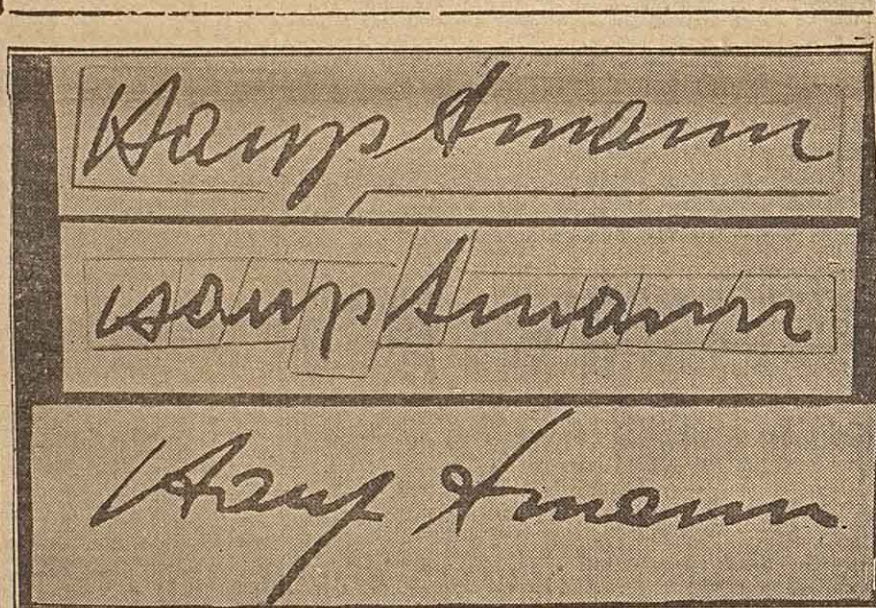 Hauptmann
Hauptmann
Hauptmann